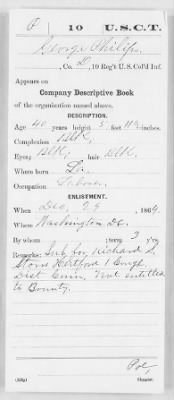 P 10 U.S.C.T.
George Philips
, Co. D, 10 Reg't U.S. Col'd Inf.
Appears on
Company Descriptive Book
of the organization named above.
DESCRIPTION.
Age 40 years; height 5 feet 11½ inches.
Complexion Blk.
Eyes Blk; hair Blk
Where born La.
Occupation Laborer
ENLISTMENT.
When Dec, 29, 1864.
Where Washington DC.
By whom ; term 3 y'rs.
Remarks: Sub, for Richard S,
Storrs Hertford 1 Congl.
Dist Conn. Not entitled
to Bounty.
Copyist.